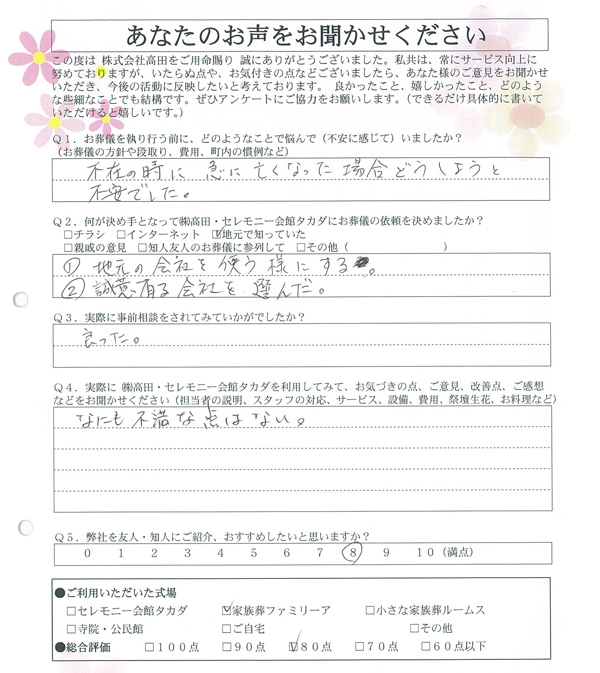 あなたのお声をお聞かせください
この度は 株式会社高田をご用命賜り 誠にありがとうございました。私共は、常にサービス向上に
努めておりますが、いたらぬ点や、お気付きの点などございましたら、あなた様のご意見をお聞かせ
いただき、今後の活動に反映したいと考えております。 良かったこと、嬉しかったこと、どのよう
な些細なことでも結構です。ぜひアンケートにご協力をお願いします。（できるだけ具体的に書いて
いただけると嬉しいです。）
Q１．お葬儀を執り行う前に、どのようなことで悩んで（不安に感じて）いましたか？
（お葬儀の方針や段取り、費用、町内の慣例など）
不在の時に 急に亡くなった場合どうしようと
不安でした。
Q２．何が決め手となって㈱高田・セレモニー会館タカダにお葬儀の依頼を決めましたか？
□チラシ □インターネット ☑地元で知っていた
□親戚の意見 □知人友人のお葬儀に参列して □その他（ ）
① 地元の会社を使う様にする。
② 誠意有る会社を選んだ。
Q３．実際に事前相談をされてみていかがでしたか？
良った。
Q４．実際に ㈱高田・セレモニー会館タカダを利用してみて、お気づきの点、ご意見、改善点、ご感想
などをお聞かせください（担当者の説明、スタッフの対応、サービス、設備、費用、祭壇生花、お料理など）
なにも不満な点はない。
Q５．弊社を友人・知人にご紹介、おすすめしたいと思いますか？
０ １ ２ ３ ４ ５ ６ ７ ８ ９ １０（満点）
●ご利用いただいた式場
□セレモニー会館タカダ ☑家族葬ファミリーア □小さな家族葬ルームス
□寺院・公民館 □ご自宅 □その他
●総合評価 □１００点 □９０点 ☑８０点 □７０点 □６０点以下